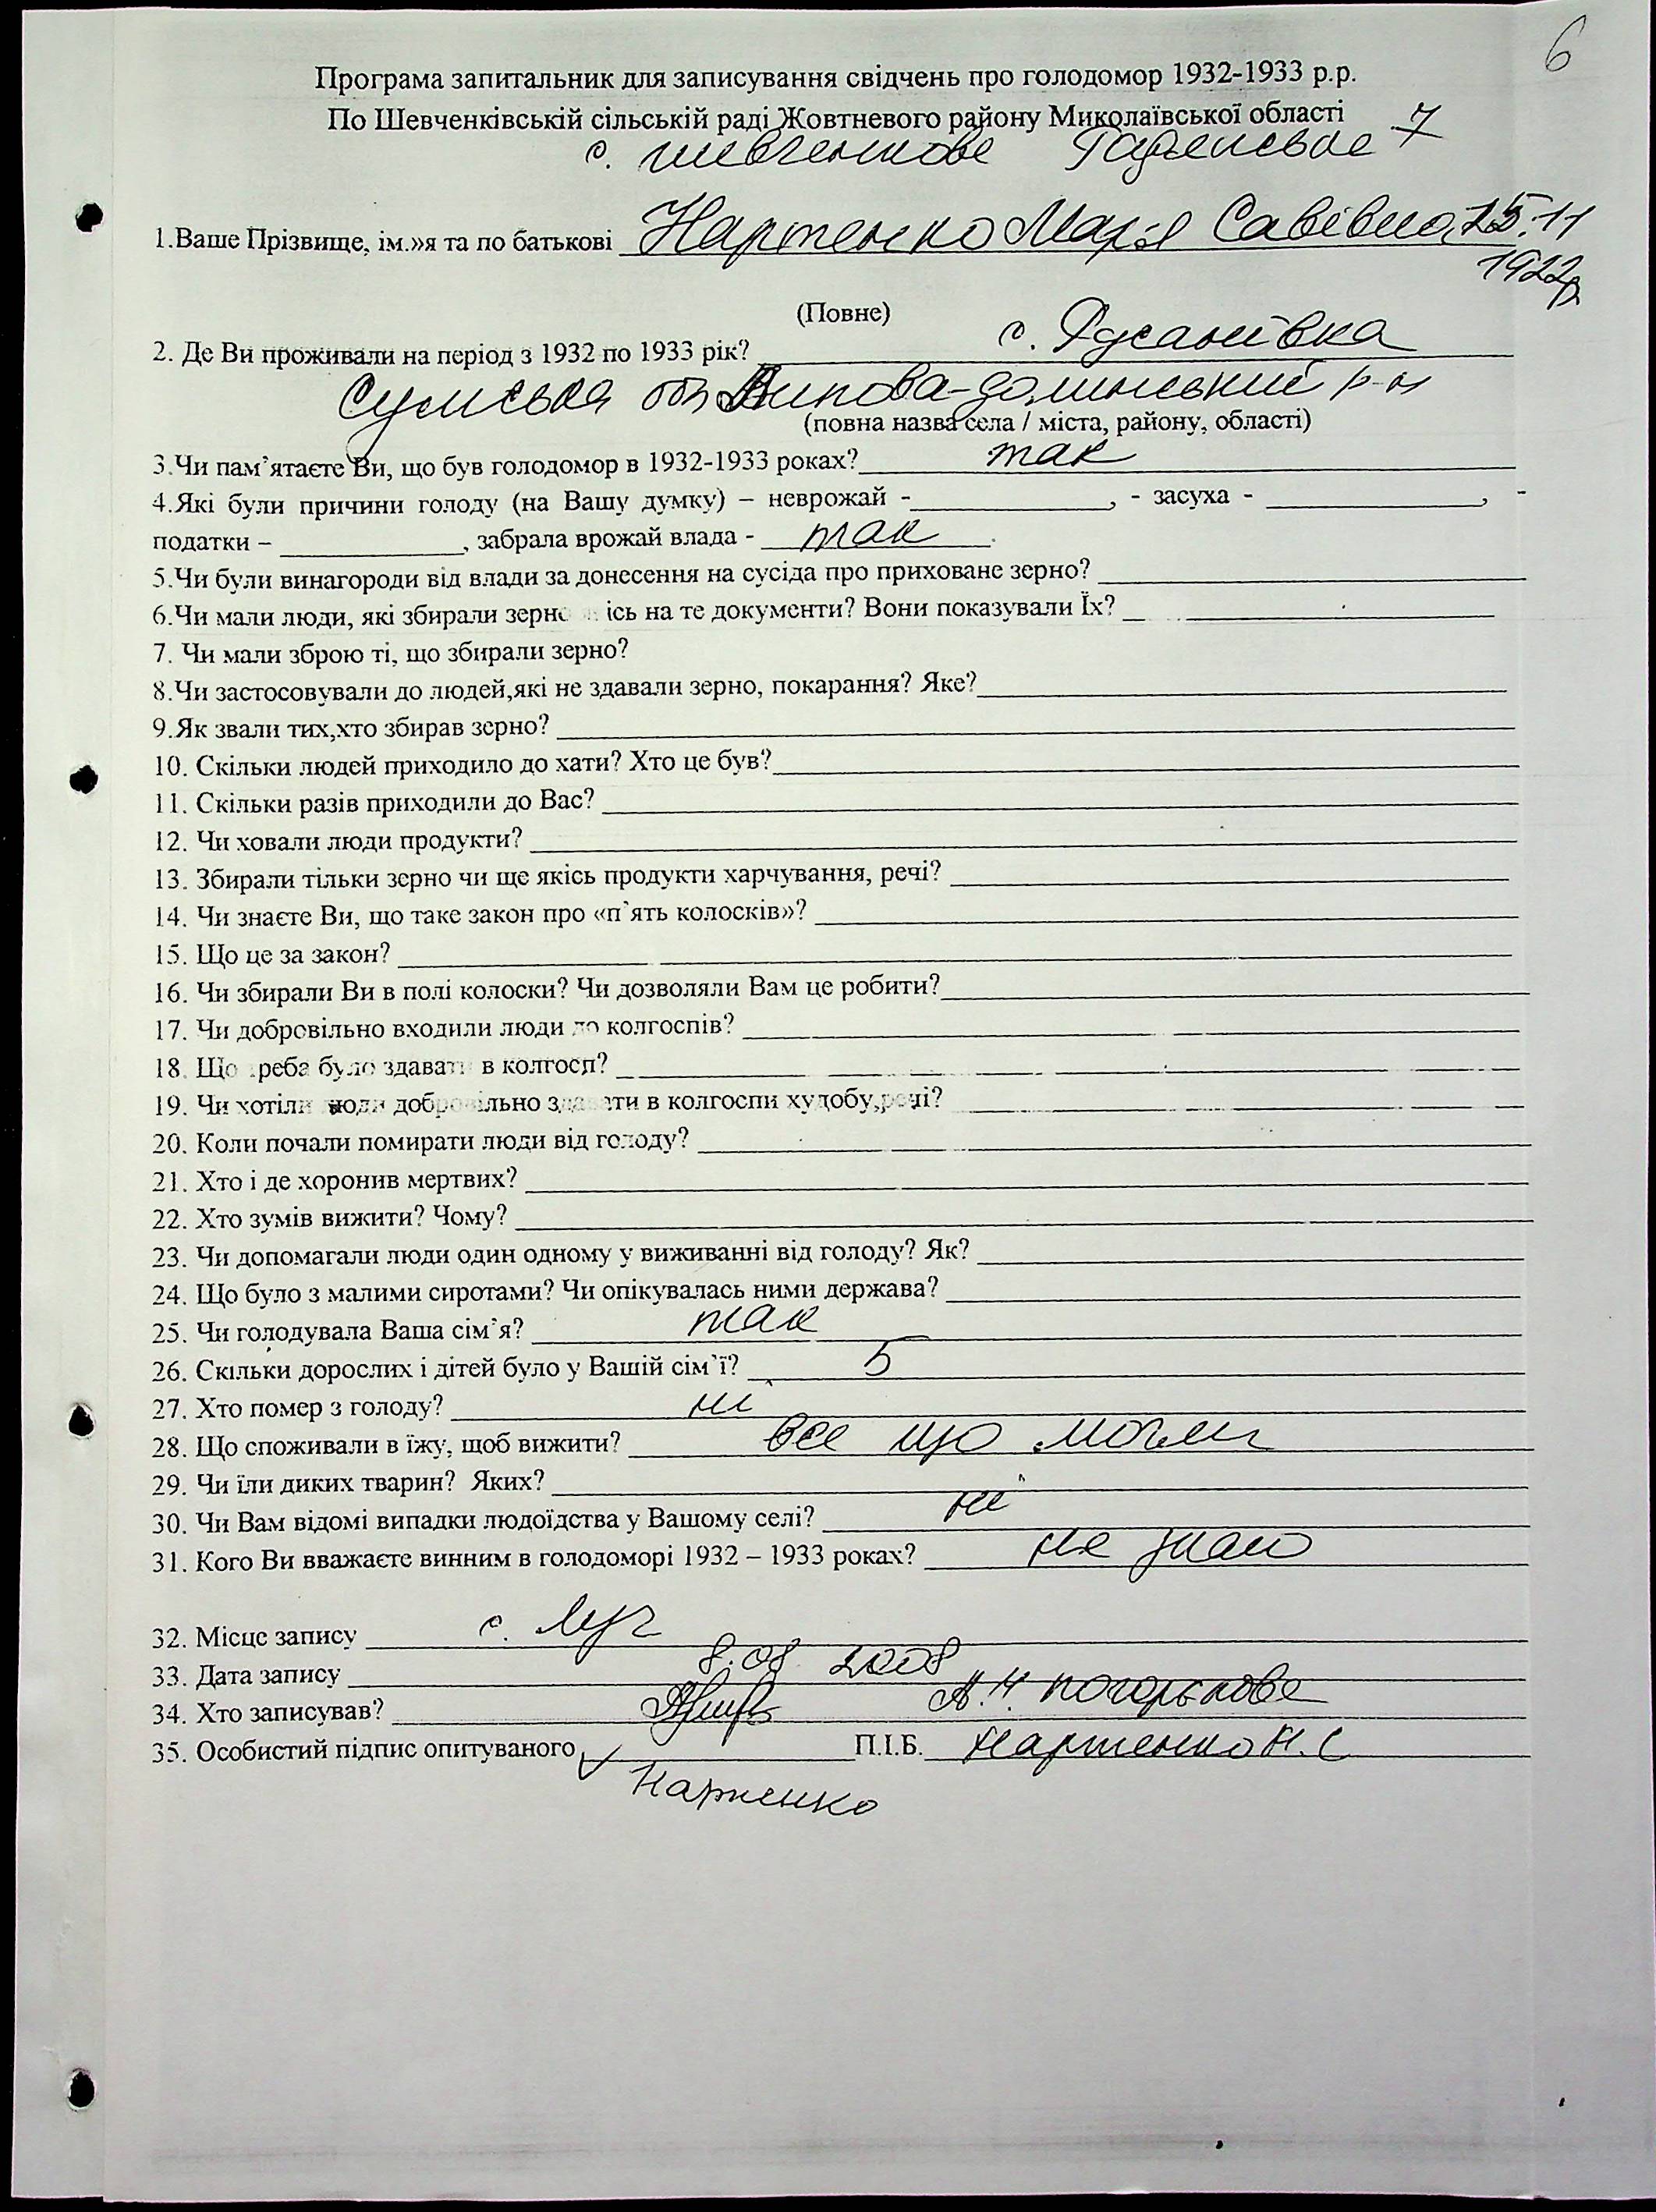 6
Програма запитальник для записування свідчень про голодомор 1932-1933 р.р.
По Шевченківській сільській раді Жовтневого району Миколаївської області
с. Шевченкове 7
1.Ваше Прізвище, ім.»я та по батькові Нартенко Марія Савівна 25.11
1922р
(Повне)
2. Де Ви проживали на період з 1932 по 1933 рік? с. Русанівка
Сумська обл Липова-долинський р-н
(повна назва села / міста, району, області)
3.Чи пам’ятаєте Ви, що був голодомор в 1932-1933 роках? так
4.Які були причини голоду (на Вашу думку) – неврожай - , - засуха - , -
податки – , забрала врожай влада - так .
5.Чи були винагороди від влади за донесення на сусіда про приховане зерно?
6.Чи мали люди, які збирали зерно ісь на те документи? Вони показували Їх?
7. Чи мали зброю ті, що збирали зерно?
8.Чи застосовували до людей,які не здавали зерно, покарання? Яке?
9.Як звали тих,хто збирав зерно?
10. Скільки людей приходило до хати? Хто це був?
11. Скільки разів приходили до Вас?
12. Чи ховали люди продукти?
13. Збирали тільки зерно чи ще якісь продукти харчування, речі?
14. Чи знаєте Ви, що таке закон про «п`ять колосків»?
15. Що це за закон?
16. Чи збирали Ви в полі колоски? Чи дозволяли Вам це робити?
17. Чи добровільно входили люди до колгоспів?
18. Що треба було здавати в колгосп?
19. Чи хотіли люди добровільно здавати в колгоспи худобу,речі?
20. Коли почали помирати люди від голоду?
21. Хто і де хоронив мертвих?
22. Хто зумів вижити? Чому?
23. Чи допомагали люди один одному у виживанні від голоду? Як?
24. Що було з малими сиротами? Чи опікувалась ними держава?
25. Чи голодувала Ваша сім’я? так
26. Скільки дорослих і дітей було у Вашій сім’ї? 5
27. Хто помер з голоду? ні
28. Що споживали в їжу, щоб вижити? все що могли
29. Чи їли диких тварин? Яких?
30. Чи Вам відомі випадки людоїдства у Вашому селі? ні
31. Кого Ви вважаєте винним в голодоморі 1932 – 1933 роках? не знаю
32. Місце запису с. Луч
33. Дата запису 8.08 2008
34. Хто записував? А.Н. Погорєлова
35. Особистий підпис опитуваного П.І.Б. Нартенко М.С
Нартенко